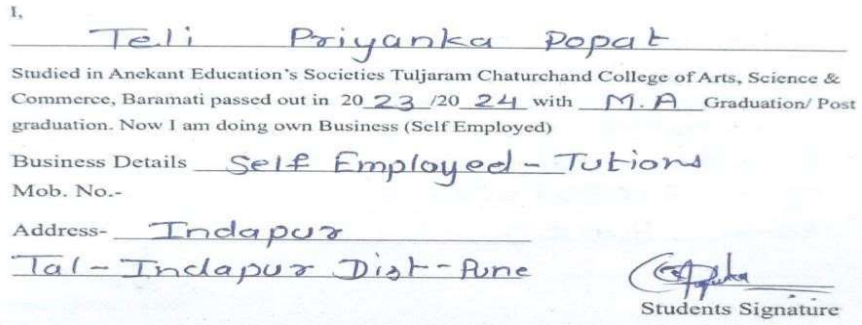 I,
Teli Priyanka Popat
Studied in Anekant Education's Societies Tuljaram Chaturchand College of Arts, Science &
Commerce, Baramati passed out in 2023/2024 with M.A Graduation/ Post
graduation. Now I am doing own Business (Self Employed)
Business Details Self Employed - Tutions
Mob. No.-
Address- Indapur
Tal - Indapur Dist - Pune
Students Signature